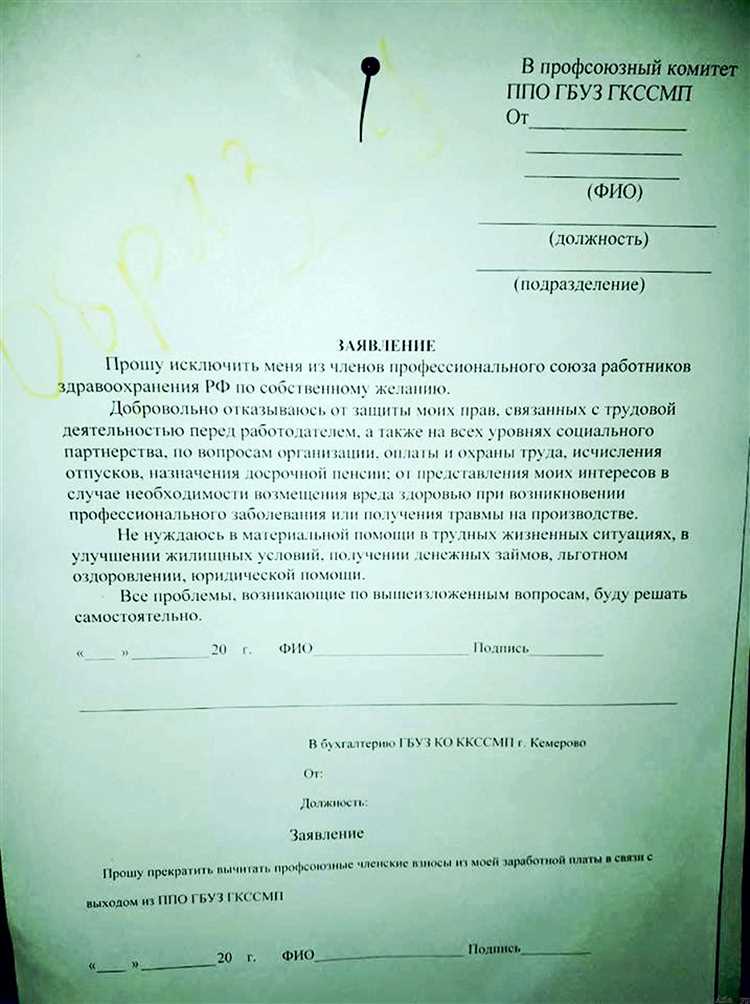 Образец
В профсоюзный комитет
ППО ГБУЗ ГКССМП
От_______________
_______________
_______________
(ФИО)
_______________________
(должность)
_______________________
(подразделение)
ЗАЯВЛЕНИЕ
Прошу исключить меня из членов профессионального союза работников
здравоохранения РФ по собственному желанию.
Добровольно отказываюсь от защиты моих прав, связанных с трудовой
деятельностью перед работодателем, а также на всех уровнях социального
партнерства, по вопросам организации, оплаты и охраны труда, исчисления
отпусков, назначения досрочной пенсии; от представления моих интересов в
случае необходимости возмещения вреда здоровью при возникновении
профессионального заболевания или получения травмы на производстве.
Не нуждаюсь в материальной помощи в трудных жизненных ситуациях, в
улучшении жилищных условий, получении денежных займов, льготном
оздоровлении, юридической помощи.
Все проблемы, возникающие по вышеизложенным вопросам, буду решать
самостоятельно.
«___ »_________20 г. ФИО_________________ Подпись________
В бухгалтерию ГБУЗ КО ККССМП г. Кемерово
От:
Должность:
Заявление
Прошу прекратить вычитать профсоюзные членские взносы из моей заработной платы в связи с
выходом из ППО ГБУЗ ГКССМП
«___ »_________20 г. ФИО_________________ Подпись________